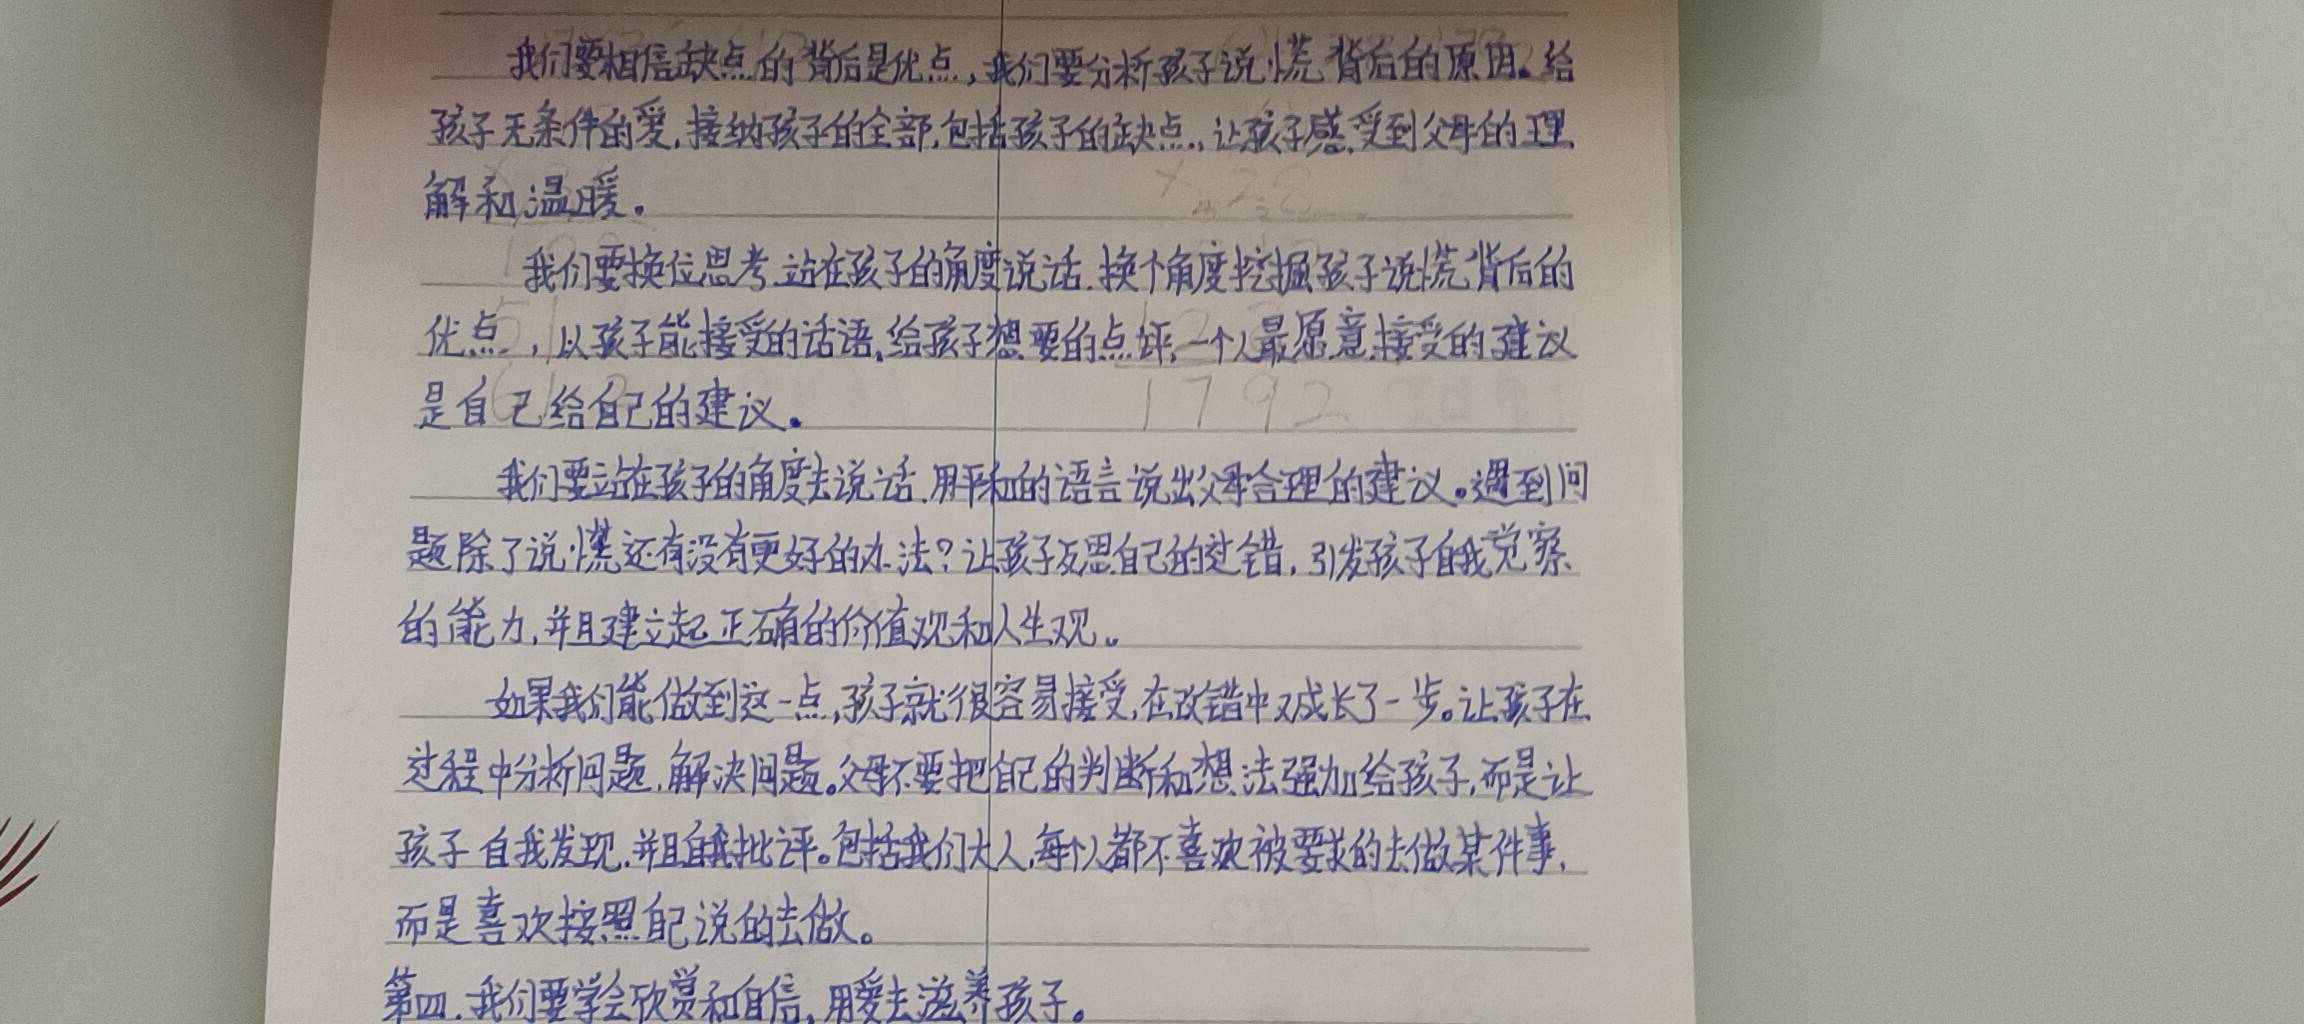 我们要相信缺点的背后是优点，我们要分析孩子说慌背后的原因。给
孩子无条件的爱，接纳孩子的全部，包括孩子的缺点，让孩子感受到父母的理
解和温暖。
我们要换位思考，站在孩子的角度说话，换个角度挖掘孩子说慌背后的
优点，以孩子能接受的话语，给孩子想要的点评，一个人最愿意接受的建议
是自己给自己的建议。
1792
我们要站在孩子的角度去说话，用平和的语言说出父母合理的建议。遇到问
题除了说慌还有没有更好的办法？让孩子反思自己的过错，引发孩子自我觉察
的能力，并且建立起正确的价值观和人生观。
如果我们能做到这一点，孩子就很容易接受，在改错中又成长了一步。让孩子在
过程中分析问题，解决问题。父母不要把自己的判断和想法强加给孩子，而是让
孩子自我发现，并且自我批评。包括我们大人，每个人都不喜欢被要求的去做某件事，
而是喜欢按照自己说的去做。
第四，我们要学会欣赏和自信，用爱去滋养孩子。